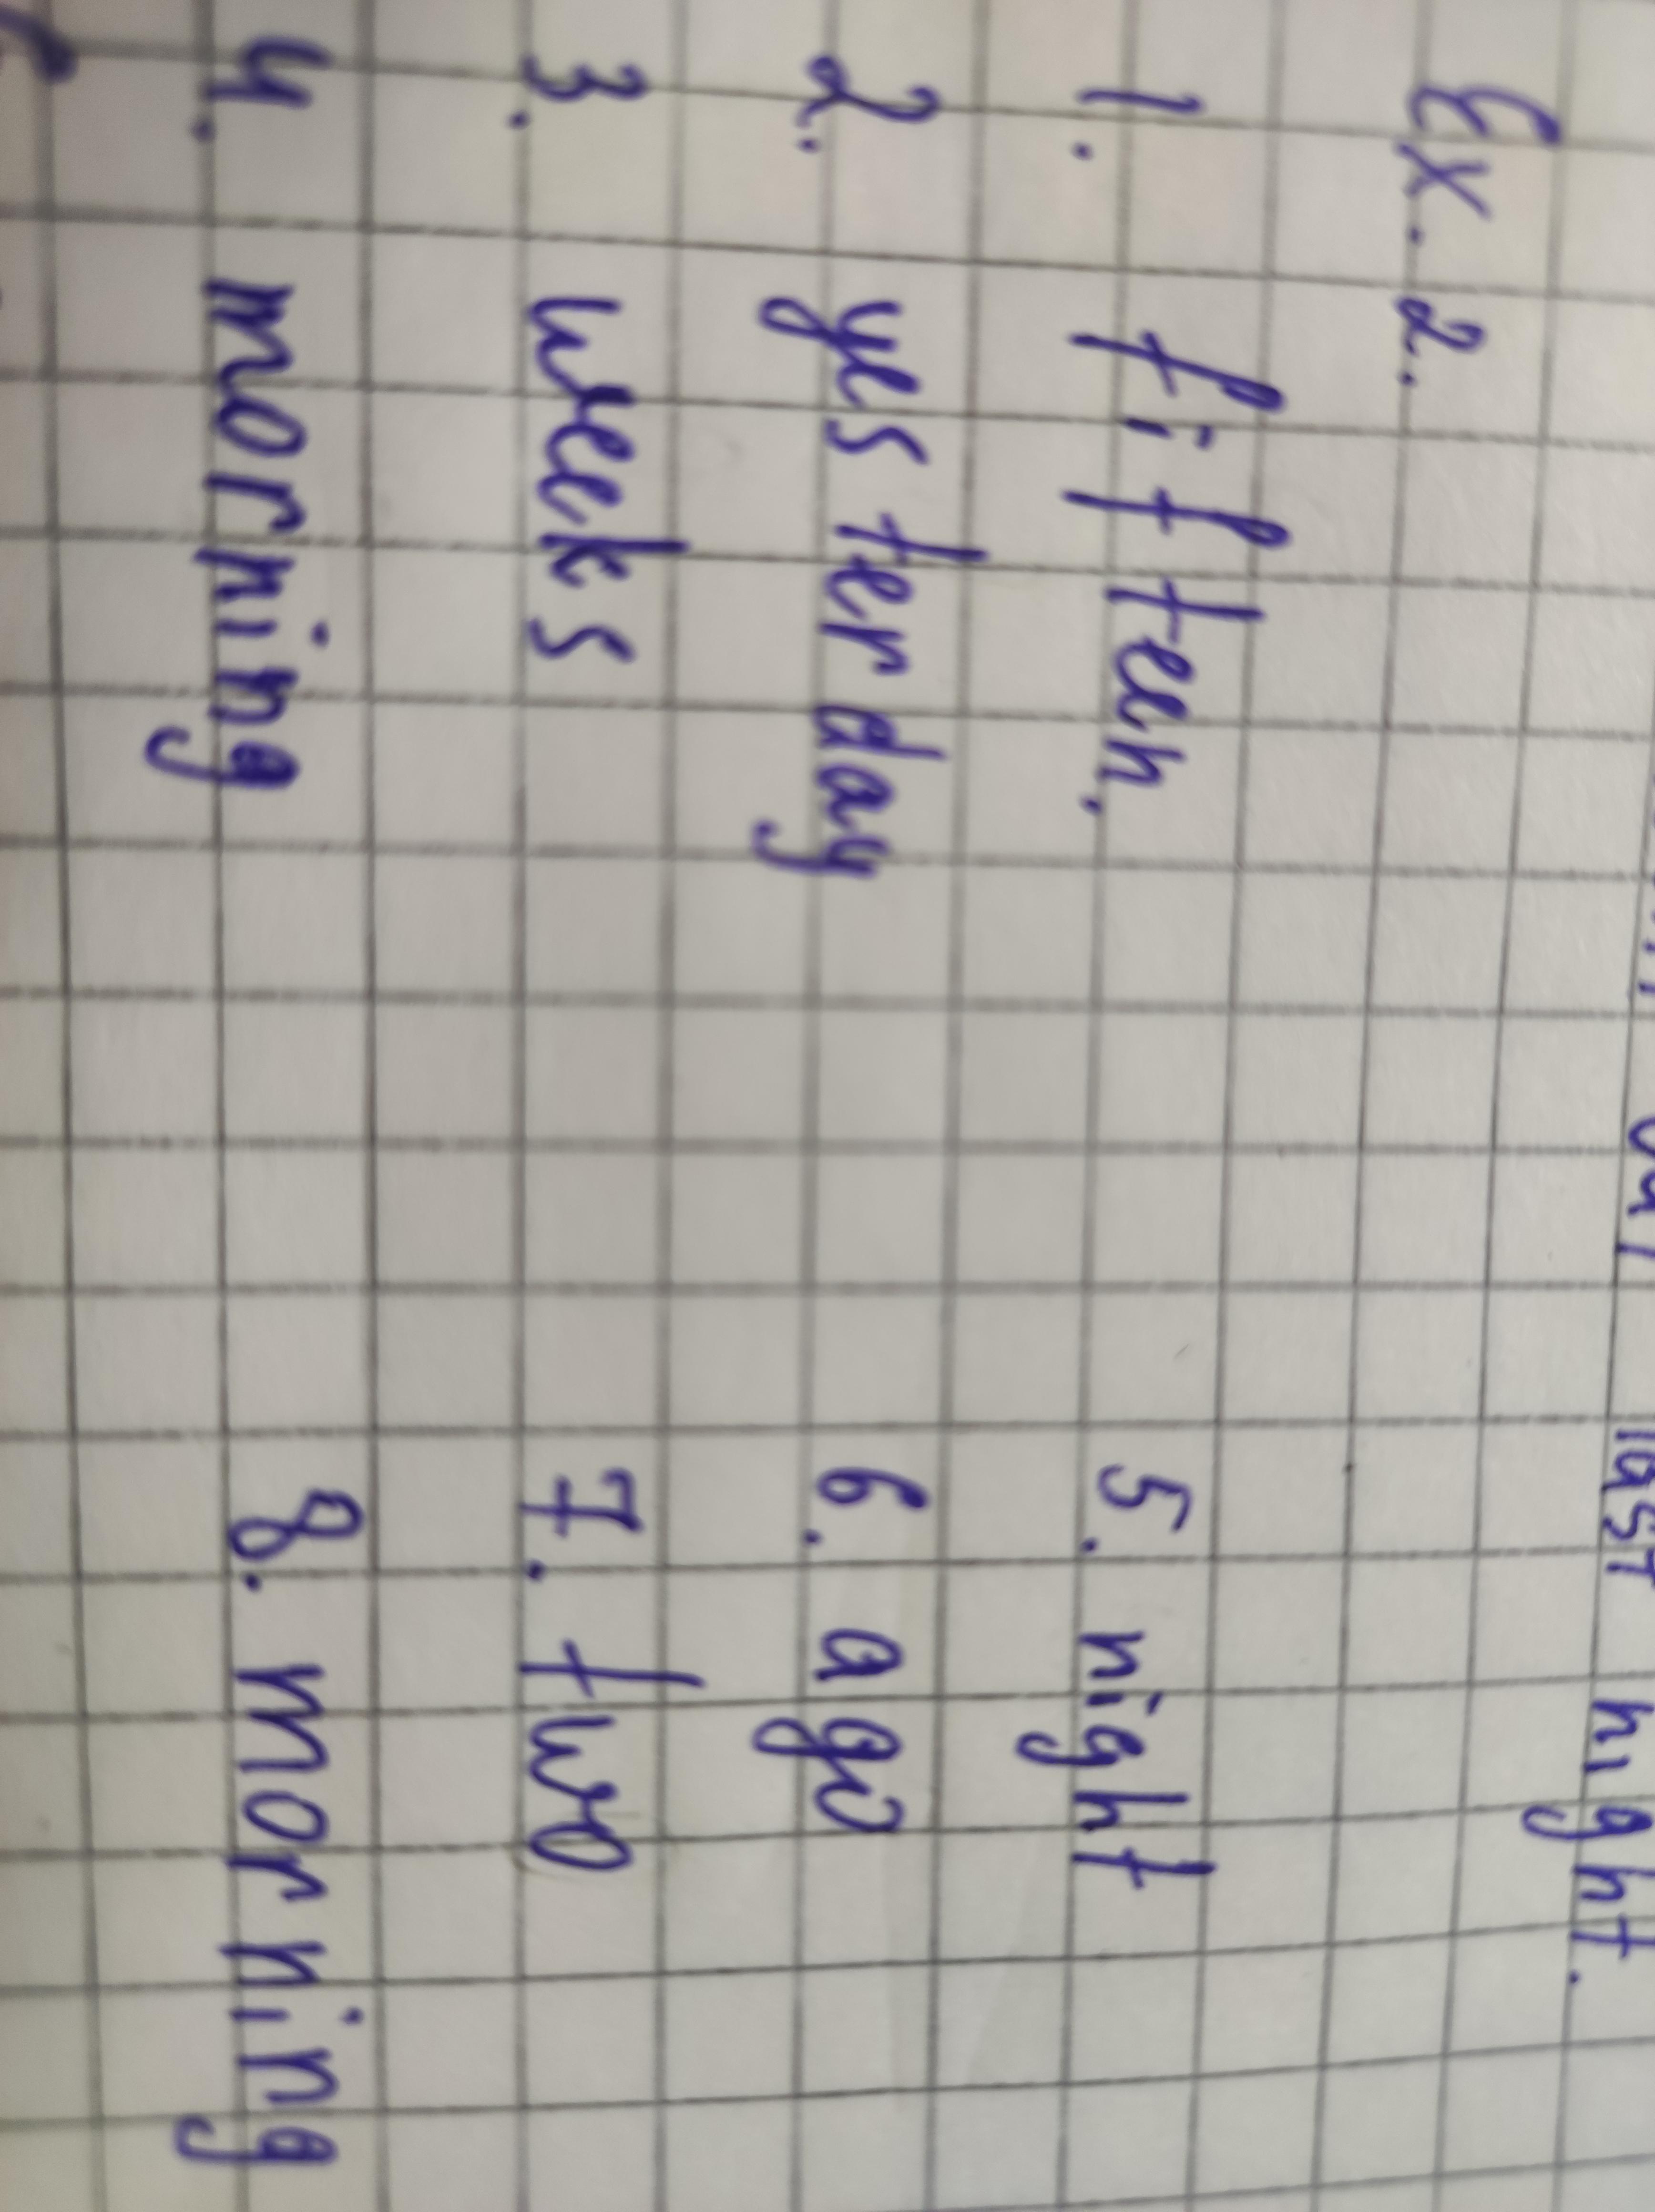 last night.
Ex. 2.
1. fifteen. 5. night
2. yesterday 6. ago
3. weeks 7. two
4. morning 8. morning